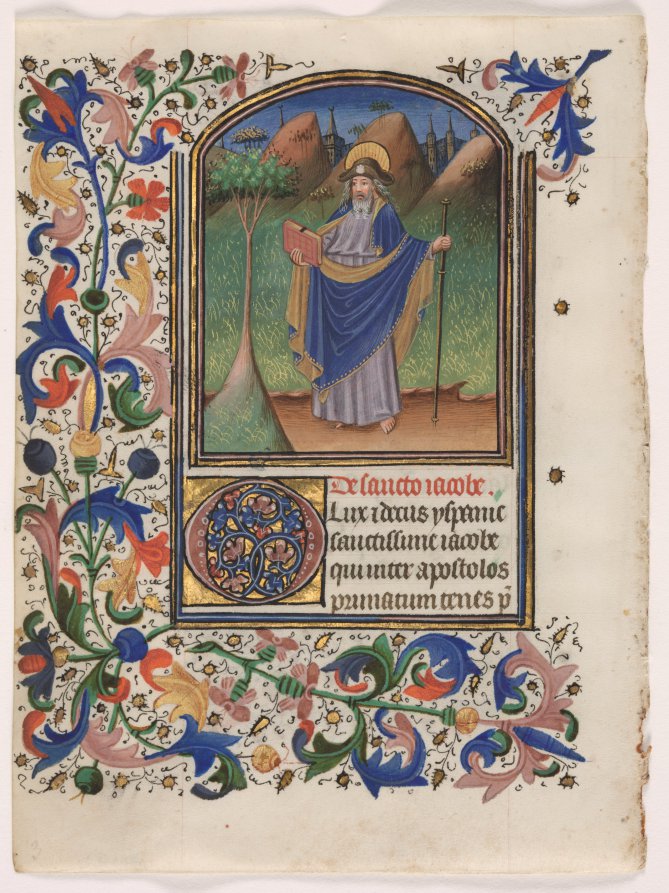 De sancto iacobe.
O Lux ⁊ decus yspanie
sanctissime iacobe
qui inter apostolos
primatum tenes p̄